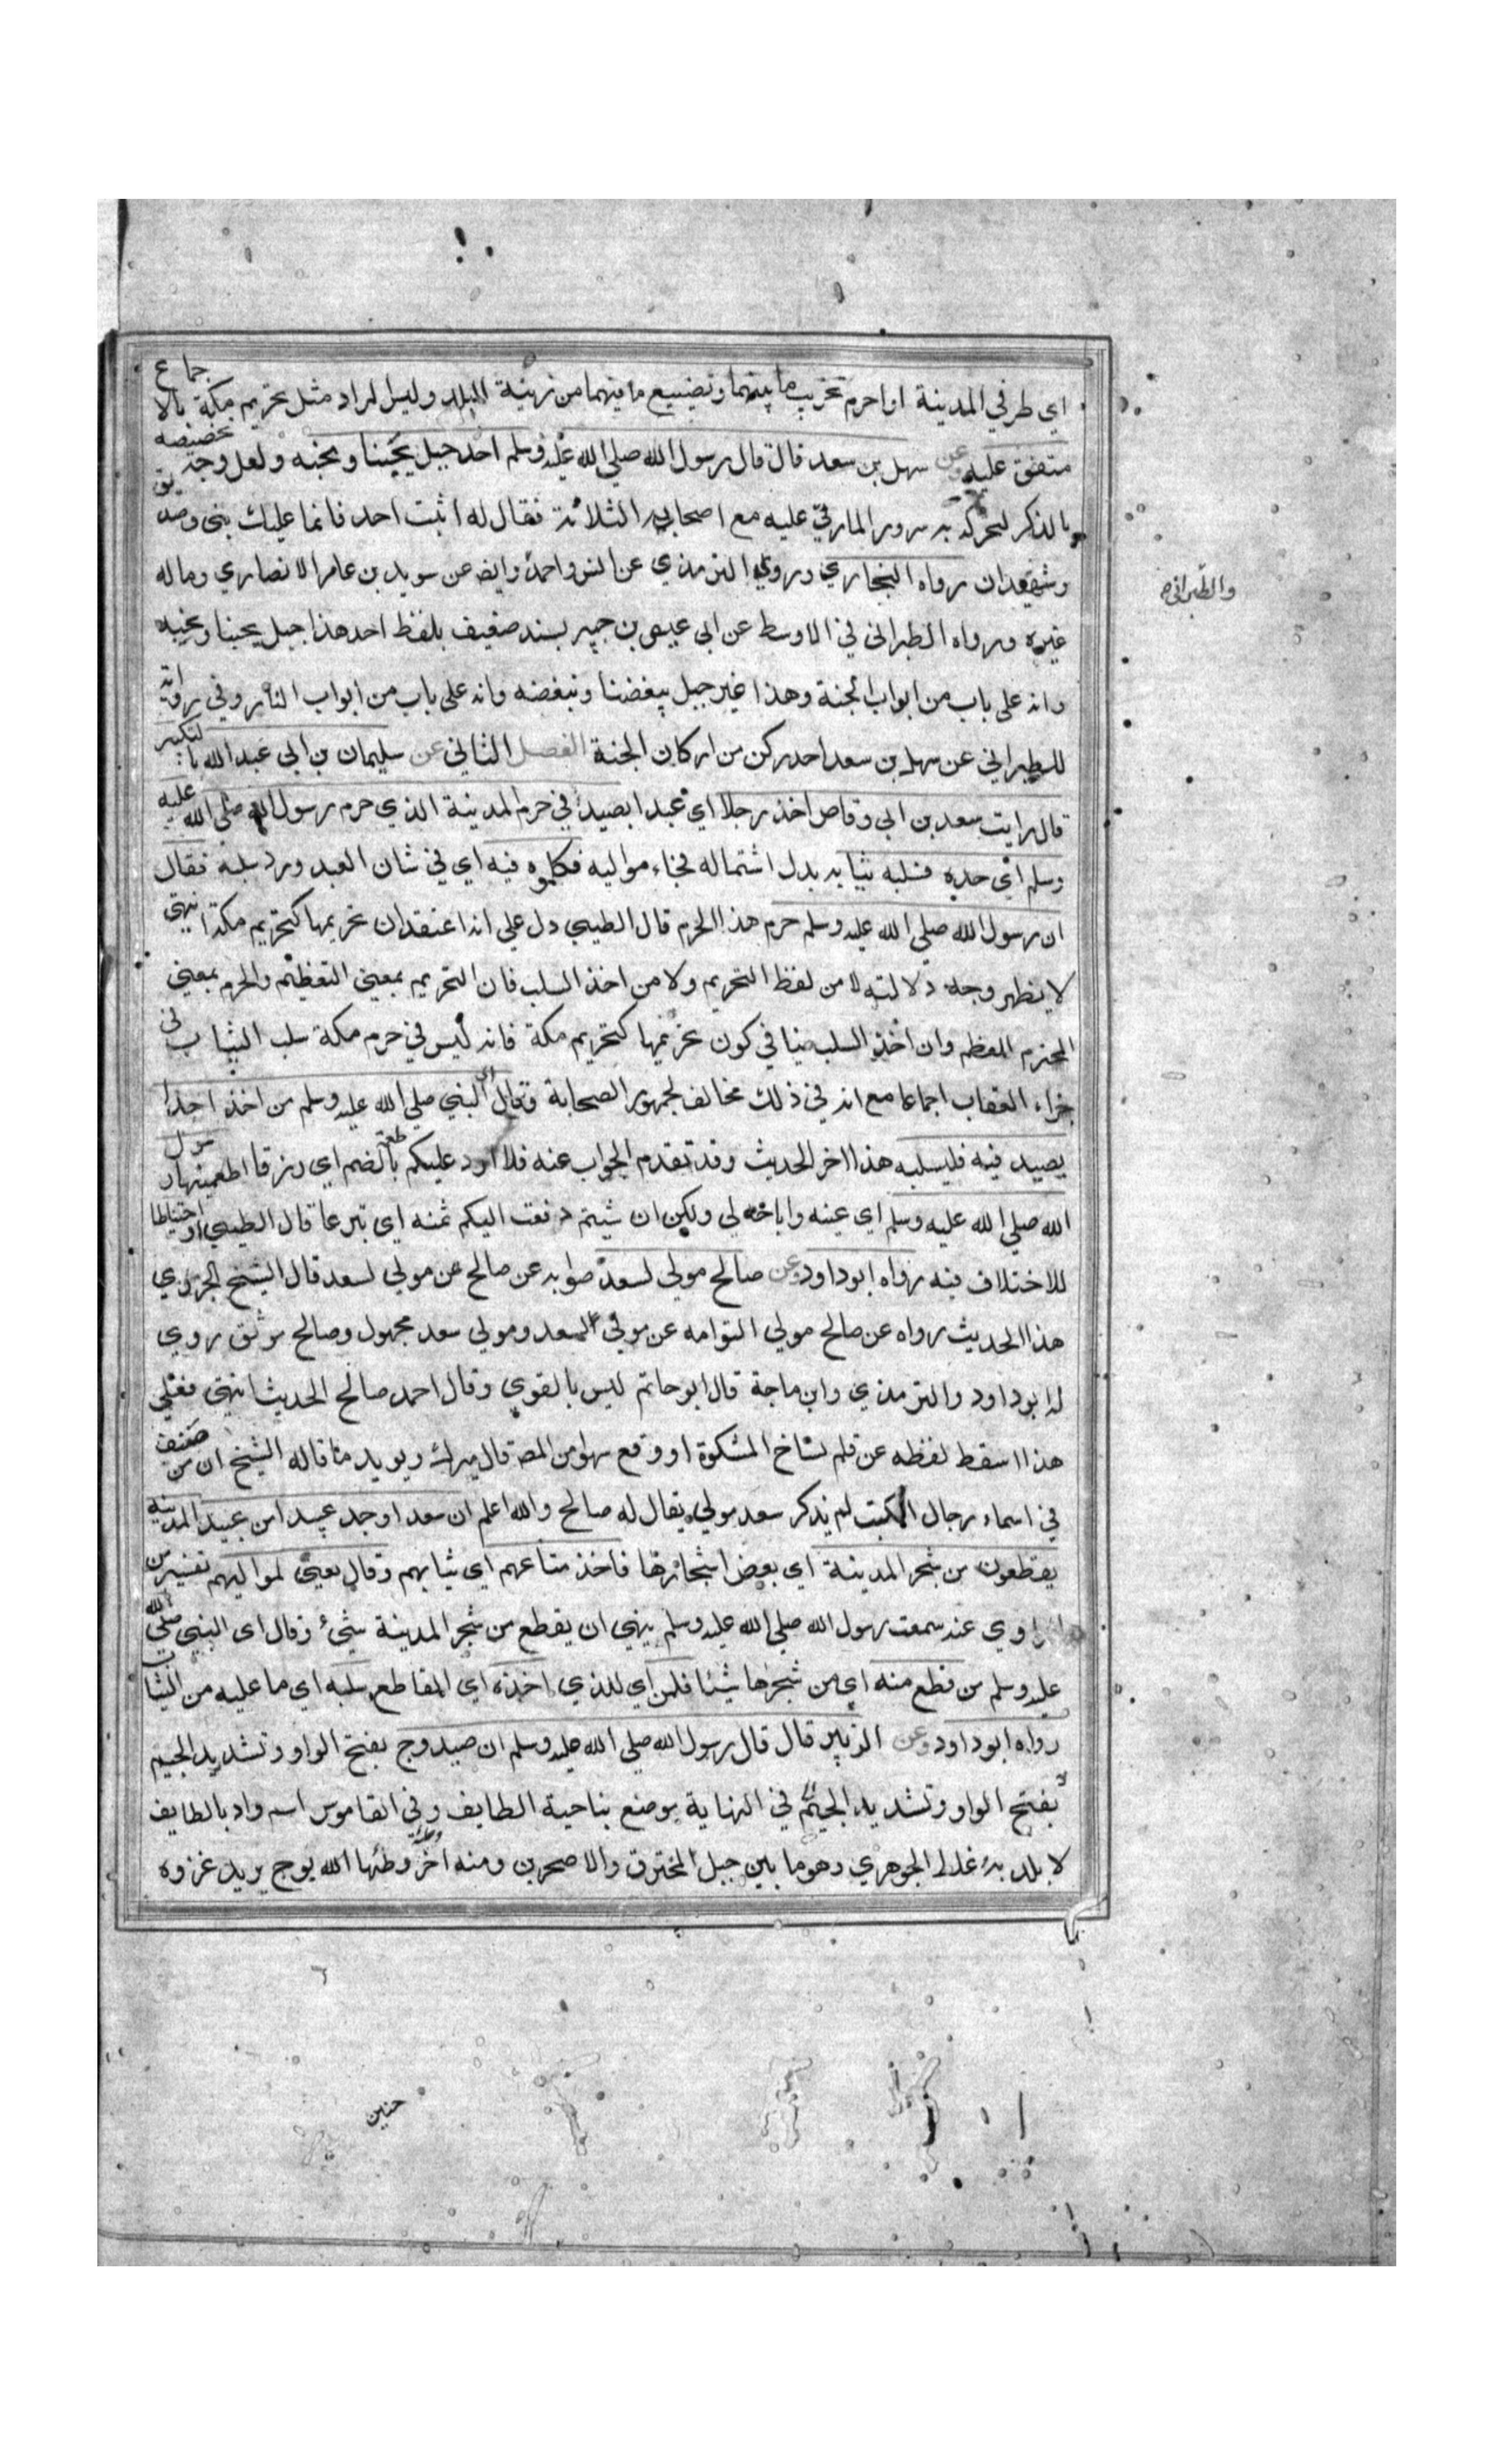 اي طرفي المدينة او احرم تخريب ما بينهما وتضييع ما فيهما من زينة البلد وليس المراد مثل تحريم مكة بالاجماع
متفق عليه وعن سهل بن سعد قال قال رسول الله صلي الله عليه وسلم احد جبل يحبنا ونحبه ولعل وجه تخصيصه
بالذكر لتحركه به سرورا لما رقي عليه مع اصحابه الثلاثة فقال له اثبت احد فانما عليك نبي وصديق
وشهيدان رواه البخاري وروي الترمذي عن انس واحمد وايض عن سويد بن عامر الانصاري وماله
غيره ورواه الطبراني في الاوسط عن ابي عبس بن جبر بسند ضعيف بلفظ احد هذا جبل يحبنا ونحبه
وانه على باب من ابواب الجنة وهذا عير جبل يبغضنا ونبغضه وانه على باب من ابواب النار وفي رواية
للطبراني عن سهل بن سعد احد ركن من اركان الجنة الفصل الثاني عن سليمان بن ابي عبد الله بالتكبير
قال رايت سعد بن ابي وقاص اخذ رجلا اي عبدا يصيد في حرم المدينة الذي حرم رسول الله صلي الله عليه
وسلم اي حده فسلبه ثيابه بدل اشتماله فجاء مواليه فكلموه فيه اي في شان العبد ورد سلبه فقال
ان رسول الله صلي الله عليه وسلم حرم هذا الحرم قال الطيبي دل علي انه اعتقد ان تحريمها كتحريم مكة انتهي
لا يظهر وجه دلالته لا من لفظ التحريم ولا من اخذ السلب فان التحريم بمعني التعظيم والحرم بمعني
المحترم المعظم وان اخذ السلب ينافي كون تحريمها كتحريم مكة فانه ليس في حرم مكة سلب الثياب في
جزاء العقاب اجماعا مع انه في ذلك مخالف لجمهور الصحابة وقال اي النبي صلي الله عليه وسلم من اخذ احدا
يصيد فيه فليسلبه هذا اخر الحديث وقد تقدم الجواب عنه فلا ارد عليكم طعمة بالضم اي رزقا اطعمنيها رسول
الله صلي الله عليه وسلم اي عينه واباحه لي ولكن ان شيتم دفعت اليكم ثمنه اي تبرعا قال الطيبي او احتياطا
للاختلاف فيه رواه ابو داود وعن صالح مولي لسعد صوابه عن صالح عن مولي لسعد قال الشيخ الجزري
هذا الحديث رواه عن صالح مولي التوامه عن مولي لسعد ومولي سعد مجهول وصالح موثق روي
له ابو داود والترمذي وابن ماجة قال ابو حاتم ليس بالقوي وقال احمد صالح الحديث انتهي فعلي
هذا اسقط لفظه عن قلم نساخ المشكوة او وقع سهوا من المص قال ميرك ويويد ما قاله الشيخ ان من صنف
في اسماء رجال الكتب لم يذكر سعد مولي يقال له صالح والله اعلم ان سعدا وجد عبيدا من عبيد المدينة
يقطعون من شجر المدينة اي بعض اشجارها فاخذ متاعهم اي ثيابهم وقال يعني لمواليهم تفسير من
الراوي عنه سمعت رسول الله صلي الله عليه وسلم ينهي ان يقطع من شجر المدينة شيئ وقال اي النبي صلي الله
عليه وسلم من قطع منه اي من شجرها شيئا فلمن اي للذي اخذه اي القاطع سلبه اي ما عليه من الثياب
رواه ابو داود وعن الزبير قال قال رسول الله صلي الله عليه وسلم ان صيد وج بفتح الواو وتشديد الجيم
بفتح الواو وتشديد الجيم في النهاية موضع بناحية الطايف وفي القاموس اسم واد بالطايف
لا بلد به غلط الجوهري وهو ما بين جبل المحترق والاصحرين ومنه اخر وطاة وطئها الله بوج يريد غزوة
والطبراني
حنين